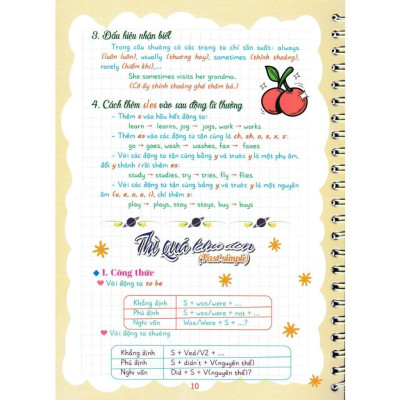 3. Dấu hiệu nhận biết
Trong câu thường có các trạng từ chỉ tần suất: always
(luôn luôn), usually (thường hay), sometimes (thỉnh thoảng),
rarely (hiếm khi),...
She sometimes visits her grandma.
(Cô ấy thỉnh thoảng ghé thăm bà.)
4. Cách thêm s/es vào sau động từ thường
- Thêm s vào hầu hết động từ:
learn → learns, jog → jogs, work → works
- Thêm es vào các động từ tận cùng là ch, sh, o, s, x, z:
go → goes, wash → washes, fax → faxes
- Với các động từ tận cùng bằng y và trước y là một phụ âm,
đổi y thành i rồi thêm es:
study → studies, try → tries, fly → flies
- Với các động từ tận cùng bằng y và trước y là một nguyên
âm (u, e, o, a, i), chỉ thêm s:
play → plays, stay → stays, buy → buys
Thì quá khứ đơn
(Past simple)
1. Công thức
Với động từ to be
Khẳng định S + was/were + ...
Phủ định S + was/were + not + ...
Nghi vấn Was/Were + S + ...?
Với động từ thường
Khẳng định S + Ved/V2 + ...
Phủ định S + didn't + V(nguyên thể)
Nghi vấn Did + S + V(nguyên thể)?
10